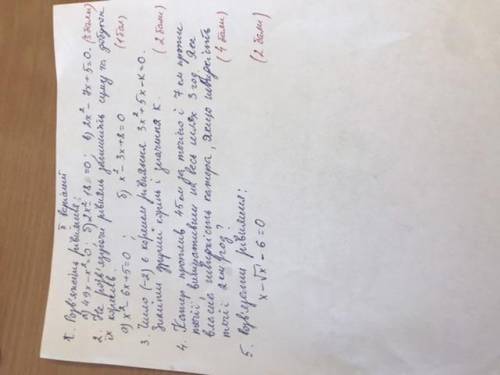 5 варіант
1. Розв'язати рівняння:
а) 49x-x²=0; б) 2x²-18=0; в) 2x²-7x+5=0. (2 бали)
2. Не розв'язуючи рівнянь знайдіть суму та добуток
їх коренів. (1 бал)
а) x²-6x+5=0; б) x²-3x+2=0 (2 бали)
3. Число (-2) є коренем рівняння 3x²+5x-к=0.
Знайти другий корінь і значення к.
4. Катер проплив 45 км за течією і 7 км проти
течії, витративши на весь шлях 3 год. Яка
власна швидкість катера, якщо швидкість
течії 2 км/год? (4 бали)
5. Розв'язати рівняння:
x-√x-6=0 (2 бали)